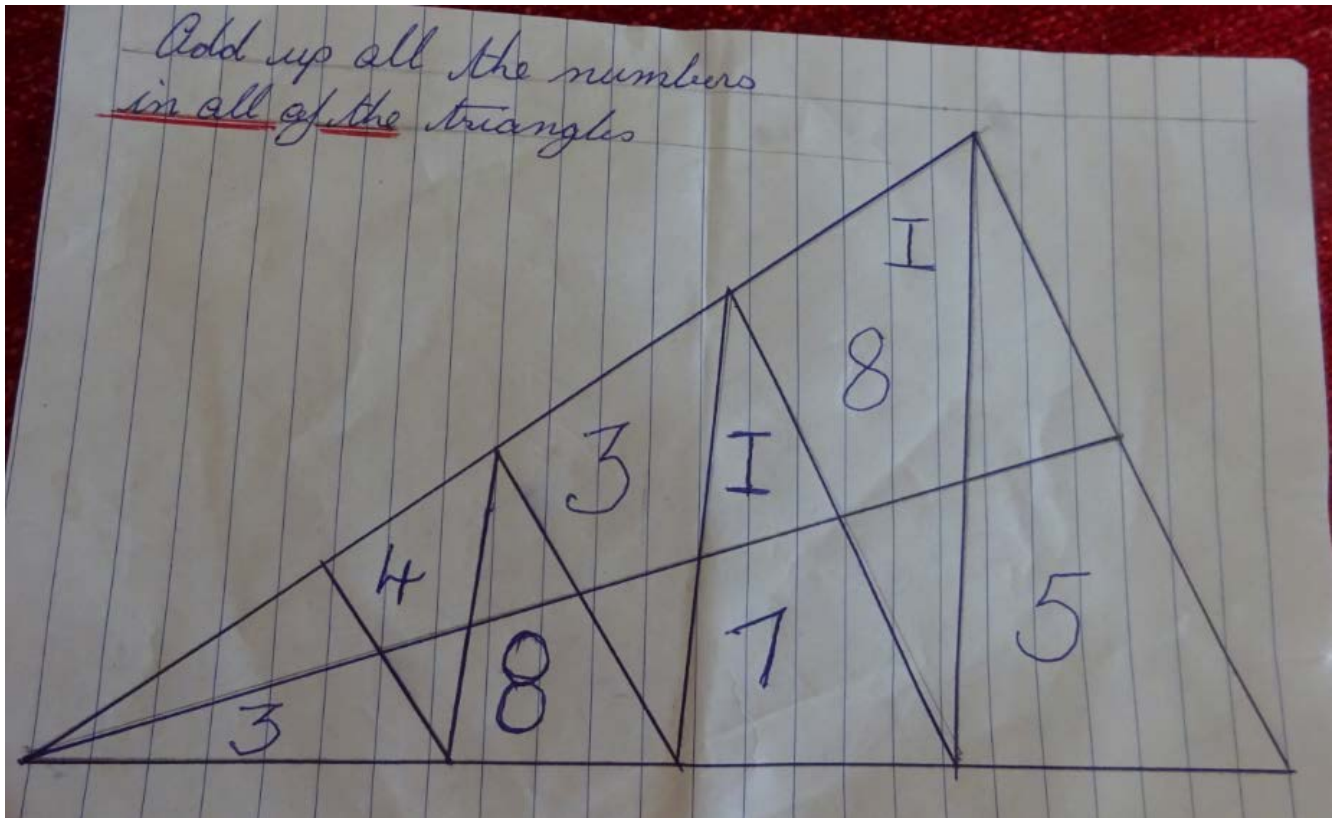 Add up all the numbers
in all of the triangles
I
8
3
I
4
5
8
7
3